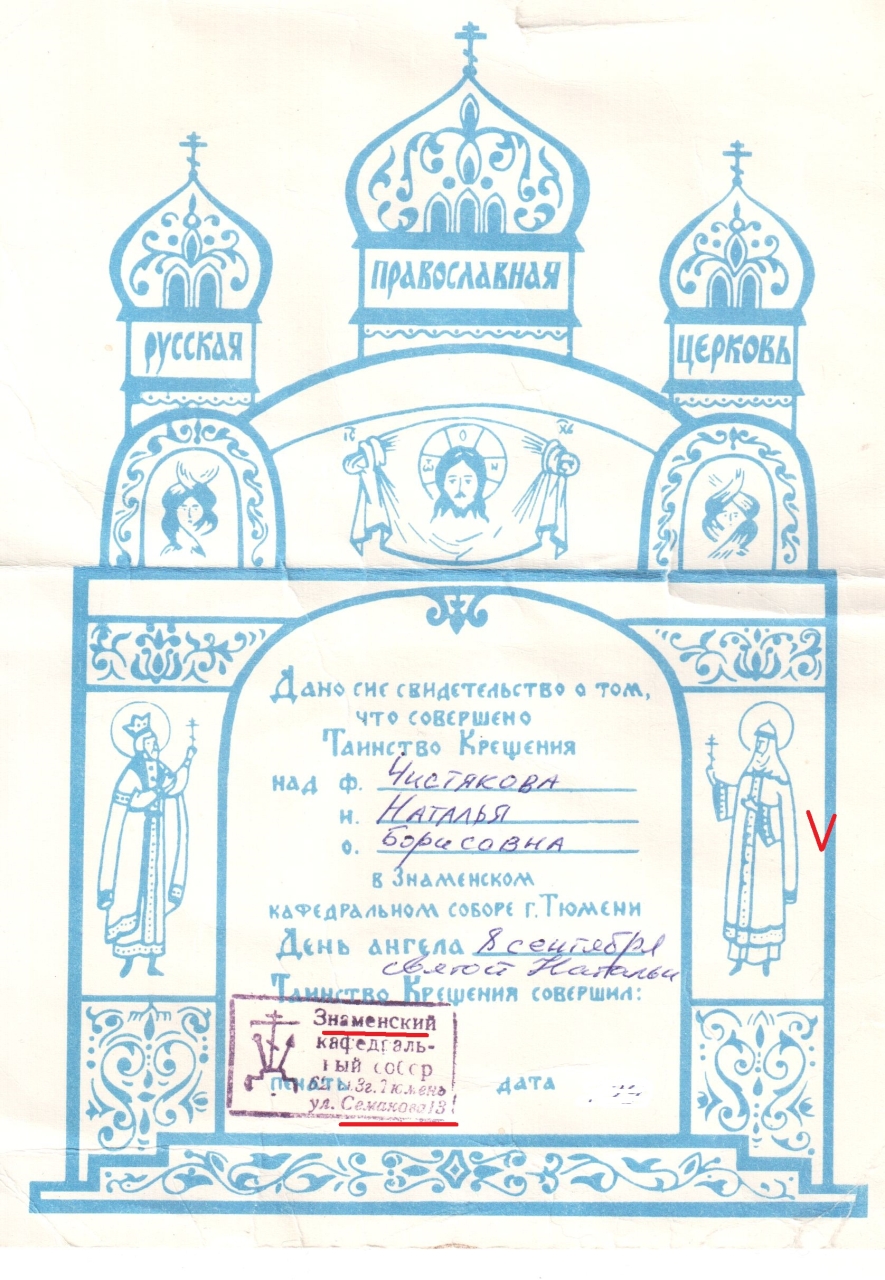 ПРАВОСЛАВНАЯ
РУССКАЯ
ЦЕРКОВЬ
IC
ХС
Дано сие свидетельство о том,
что совершено
Таинство Крещения
над ф. Чистякова
и. Наталья
о. Борисовна
в Знаменском
кафедральном соборе г. Тюмени
День ангела 8 сентября
святой Натальи
Таинство Крещения совершил:
Знаменский
кафедраль-
ный собор
г. Тюмень
ул. Семакова 13
печать
дата
V